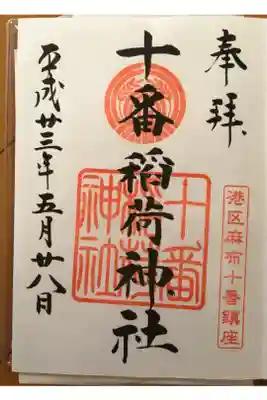 奉拝
港区麻布十番鎮座
十番稲荷神社
十番
稲荷
神社
平成廿三年五月廿八日